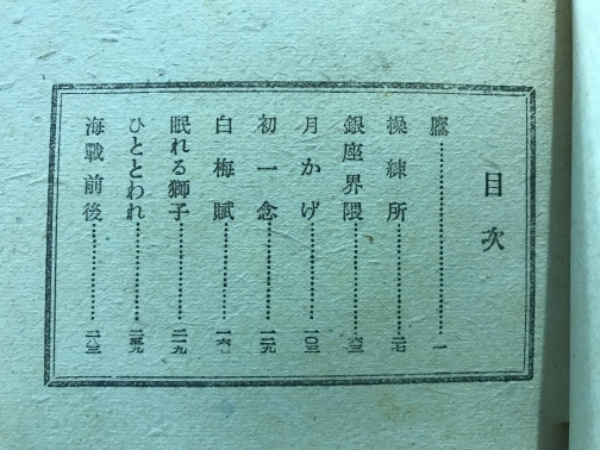 目次
鷹……………………一
操練所……………二七
銀座界隈…………六三
月かげ……………一〇三
初一念……………一二九
白梅賦……………一六七
眠れる獅子………二一九
ひととわれ………二五九
海戰前後…………二八三